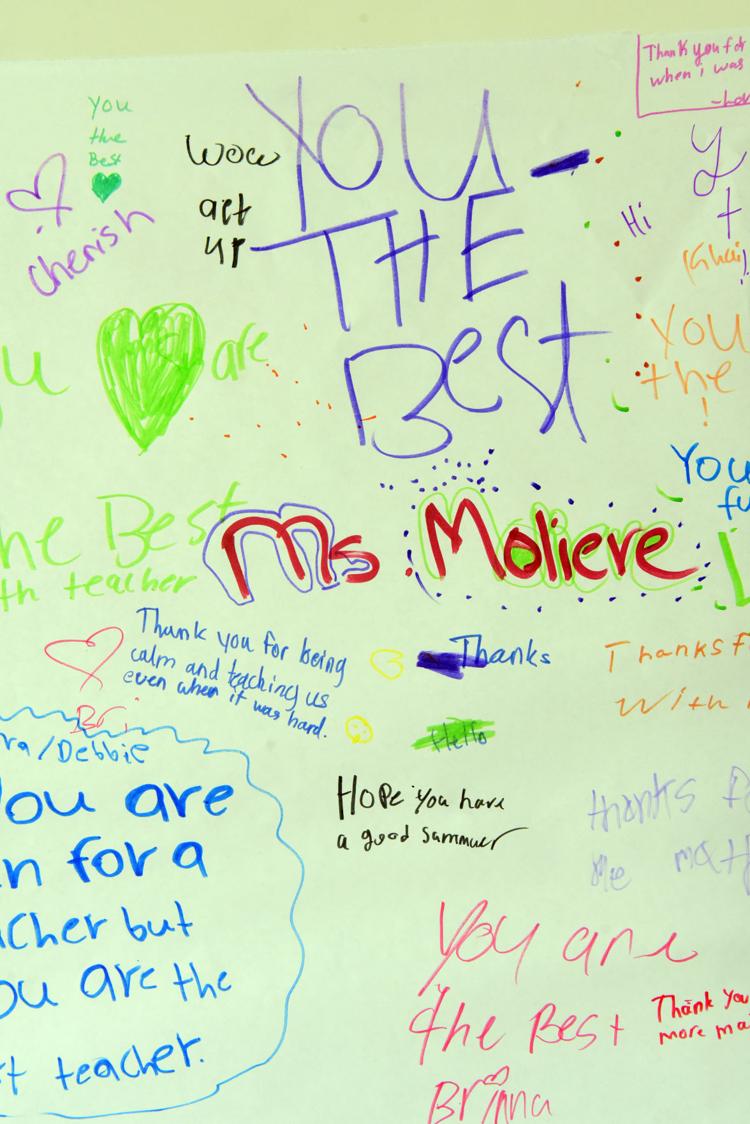 Thank you for
when i was
You
the
Best
cherish
wow
art
up
YOU
THE
Best
Hi
Y
t
(Ghai)
You
the
!
are
he Best
th teacher
Ms Molieve
You
fu
Thank you for being
calm and teaching us
even when it was hard.
Thanks
Hello
Thanks f
With
ra/Debbie
You are
n for a
acher but
ou are the
st teacher.
Hope you have
a good summer
thanks fo
me math
You are
the Best
Brinna
Thank You
more ma